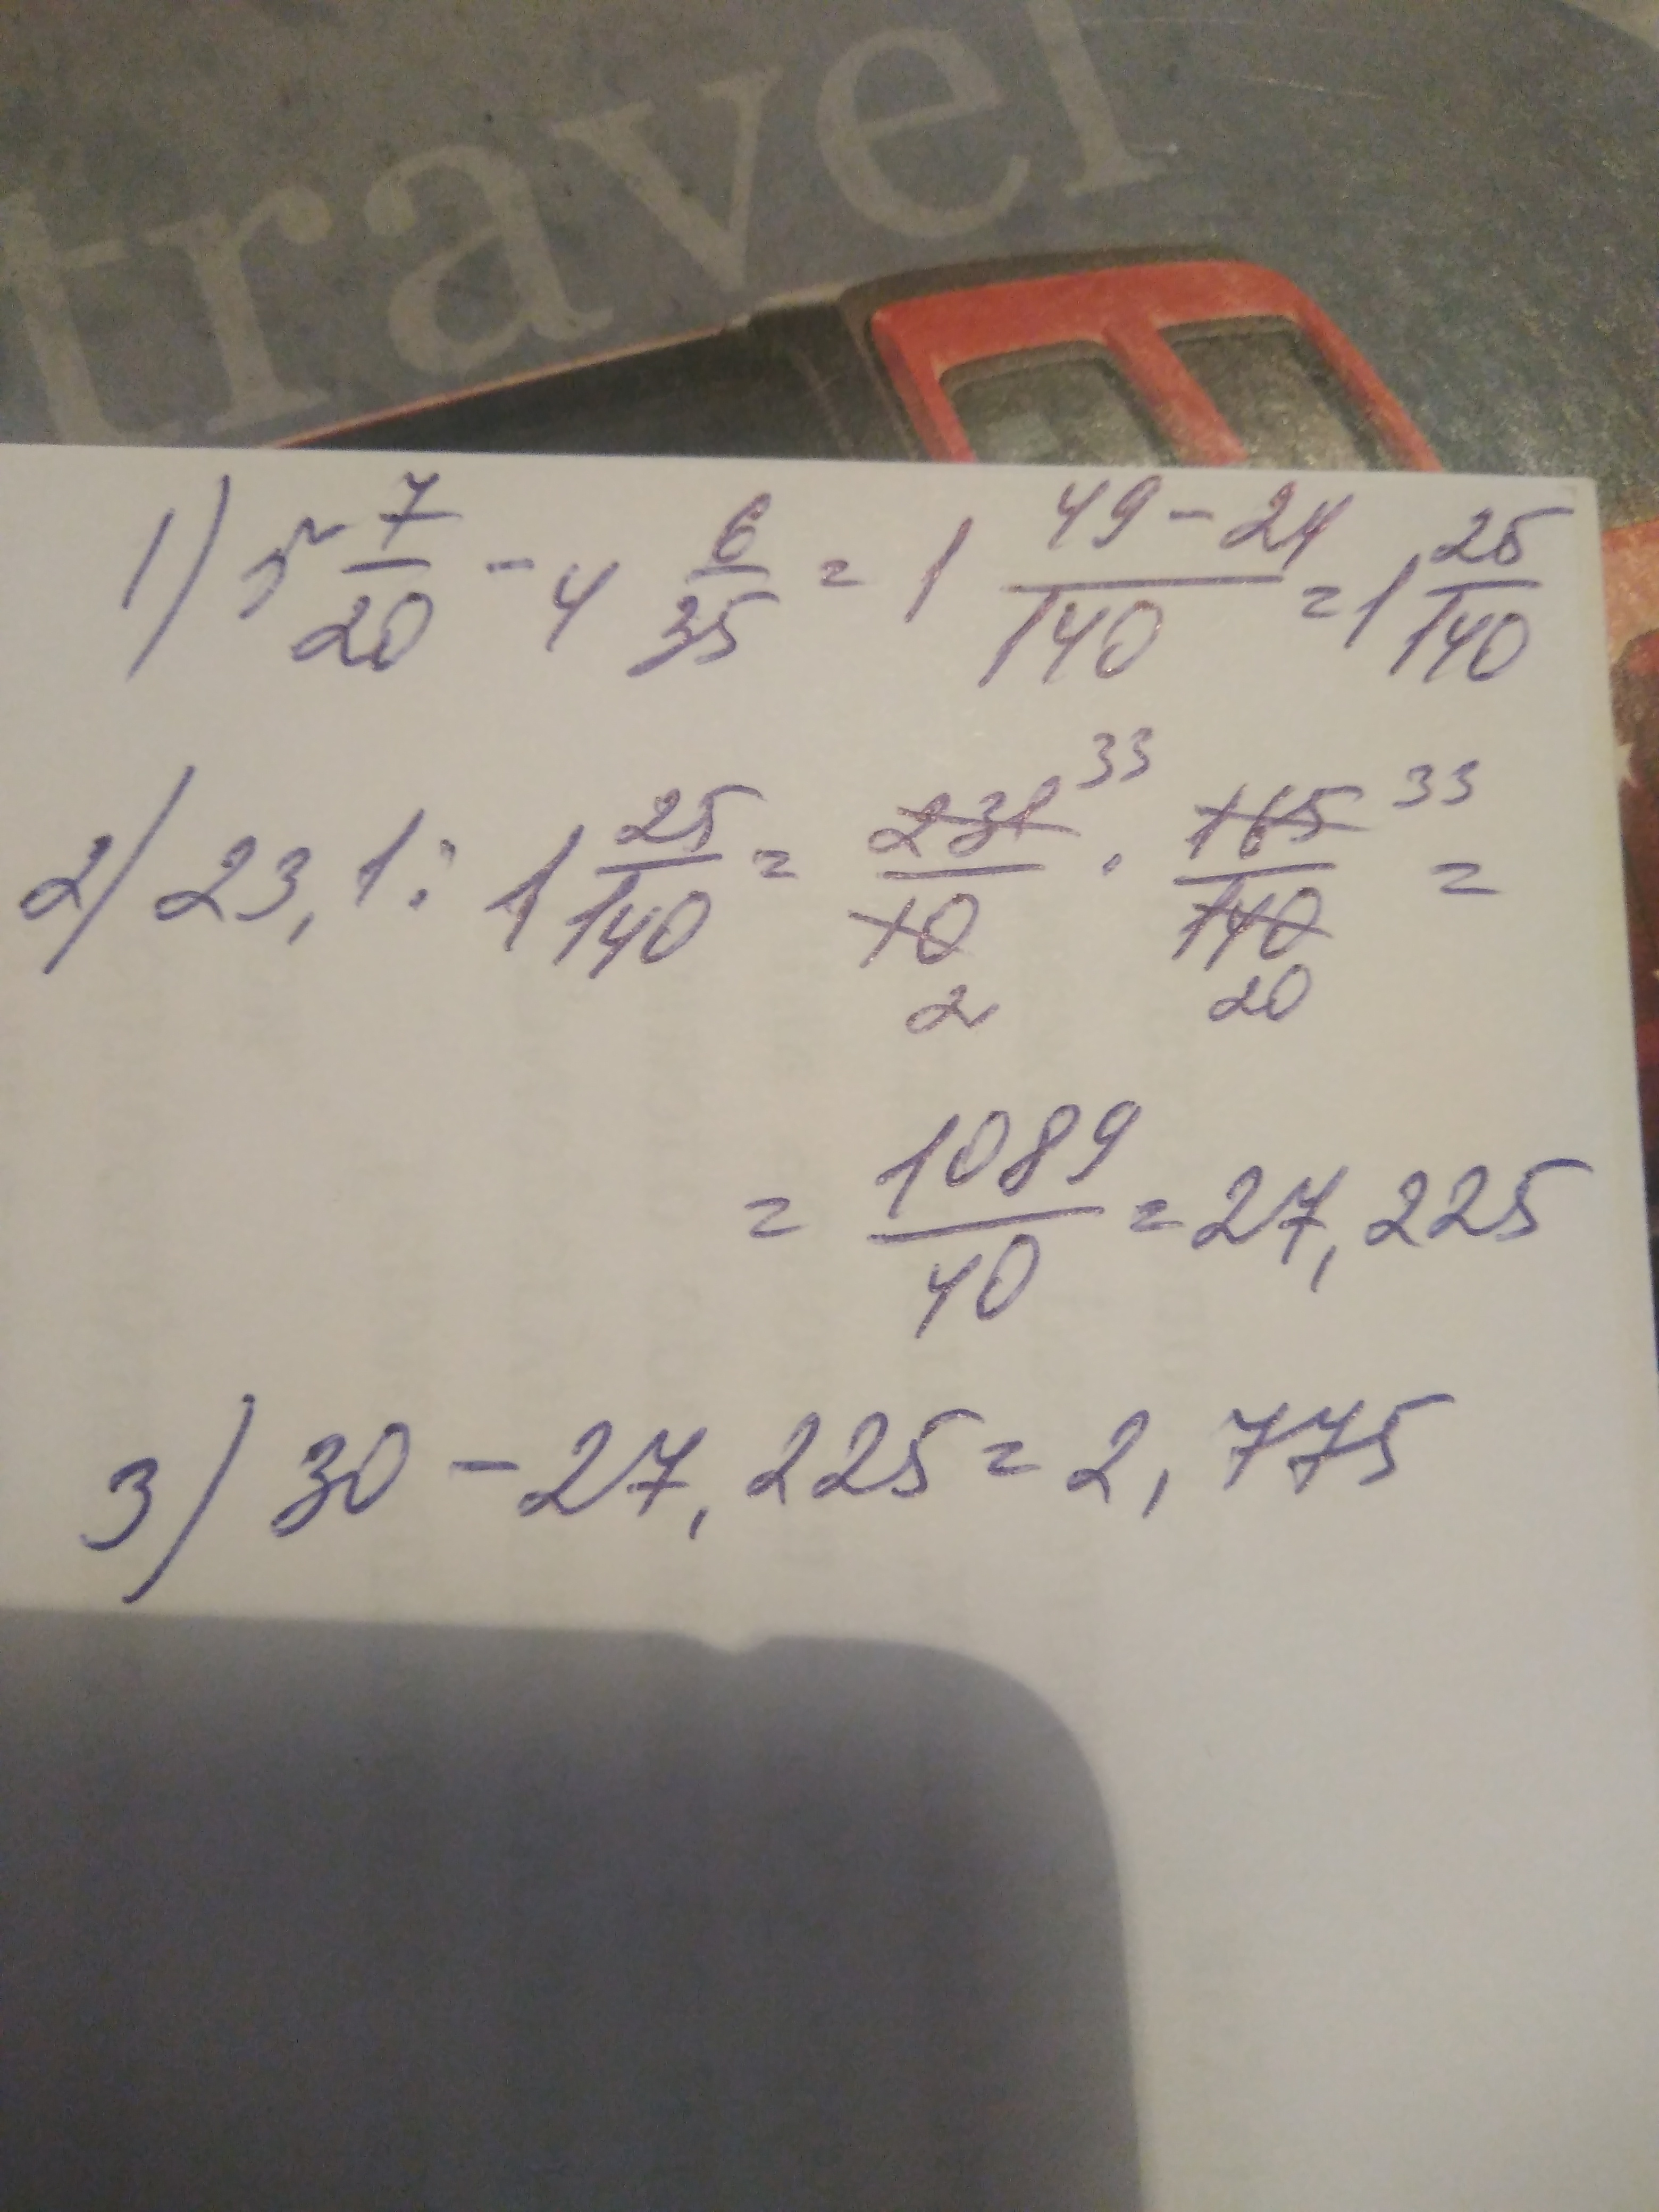 travel
1) 5 7/20 - 4 6/35 = 1 49-24/140 = 1 25/140
2) 23,1 : 1 25/140 = 231/10 33 2 · 165/140 33 20 =
= 1089/40 = 27,225
3) 30 - 27,225 = 2,775